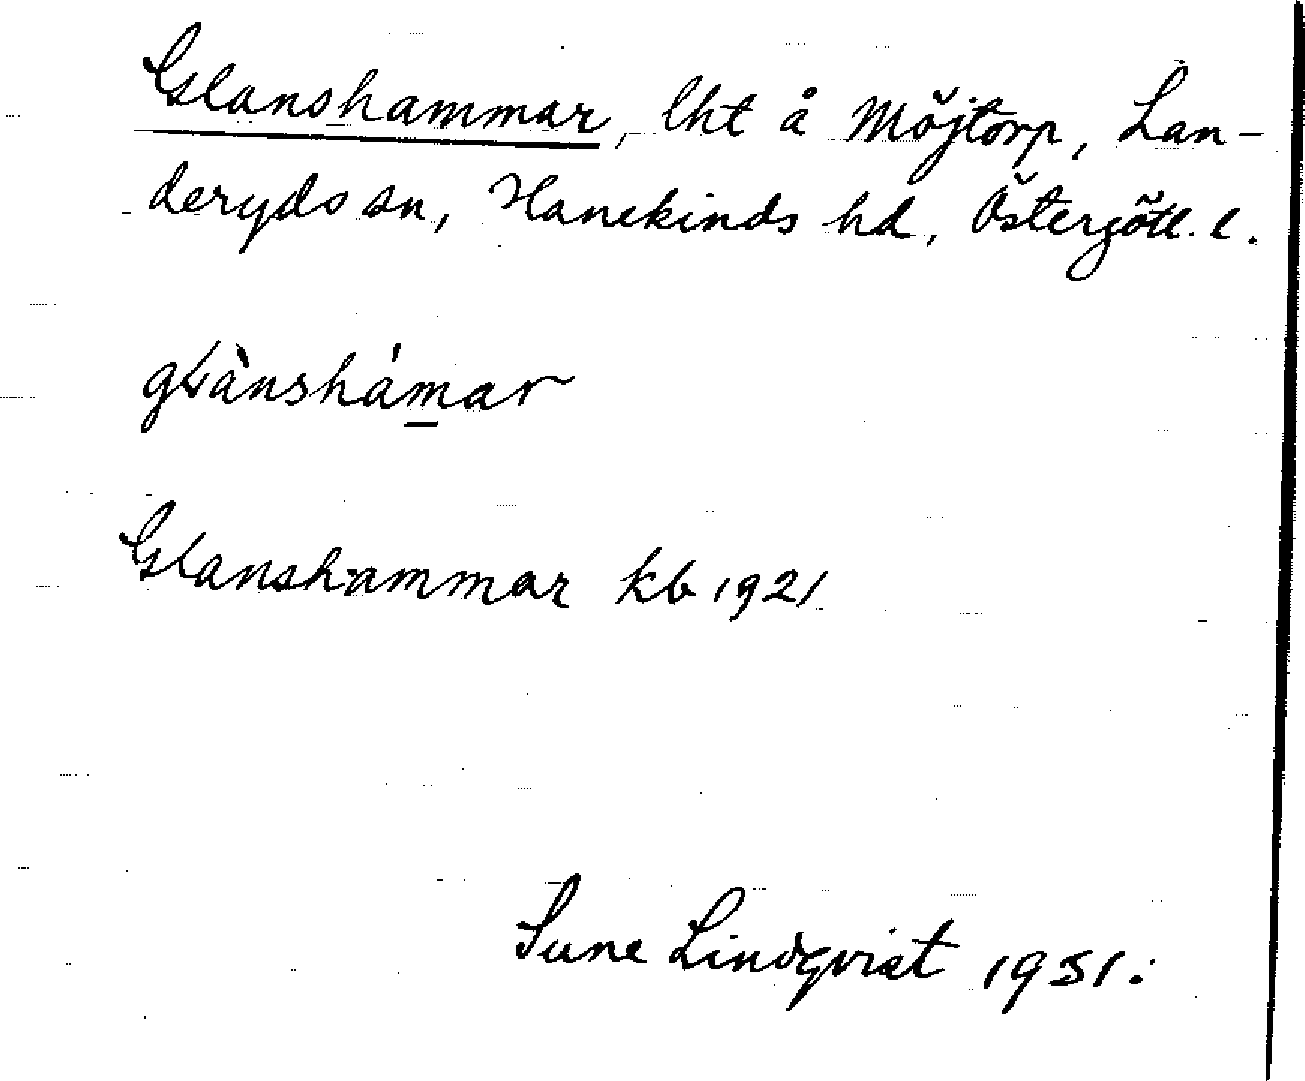 Glanshammar, lht å Möjtorp, Lan-
deryds sn, Hanekinds hd, Östergötl. l.
gɫànshámar
Glanshammar kb 1921
Sune Lindqvist 1951.